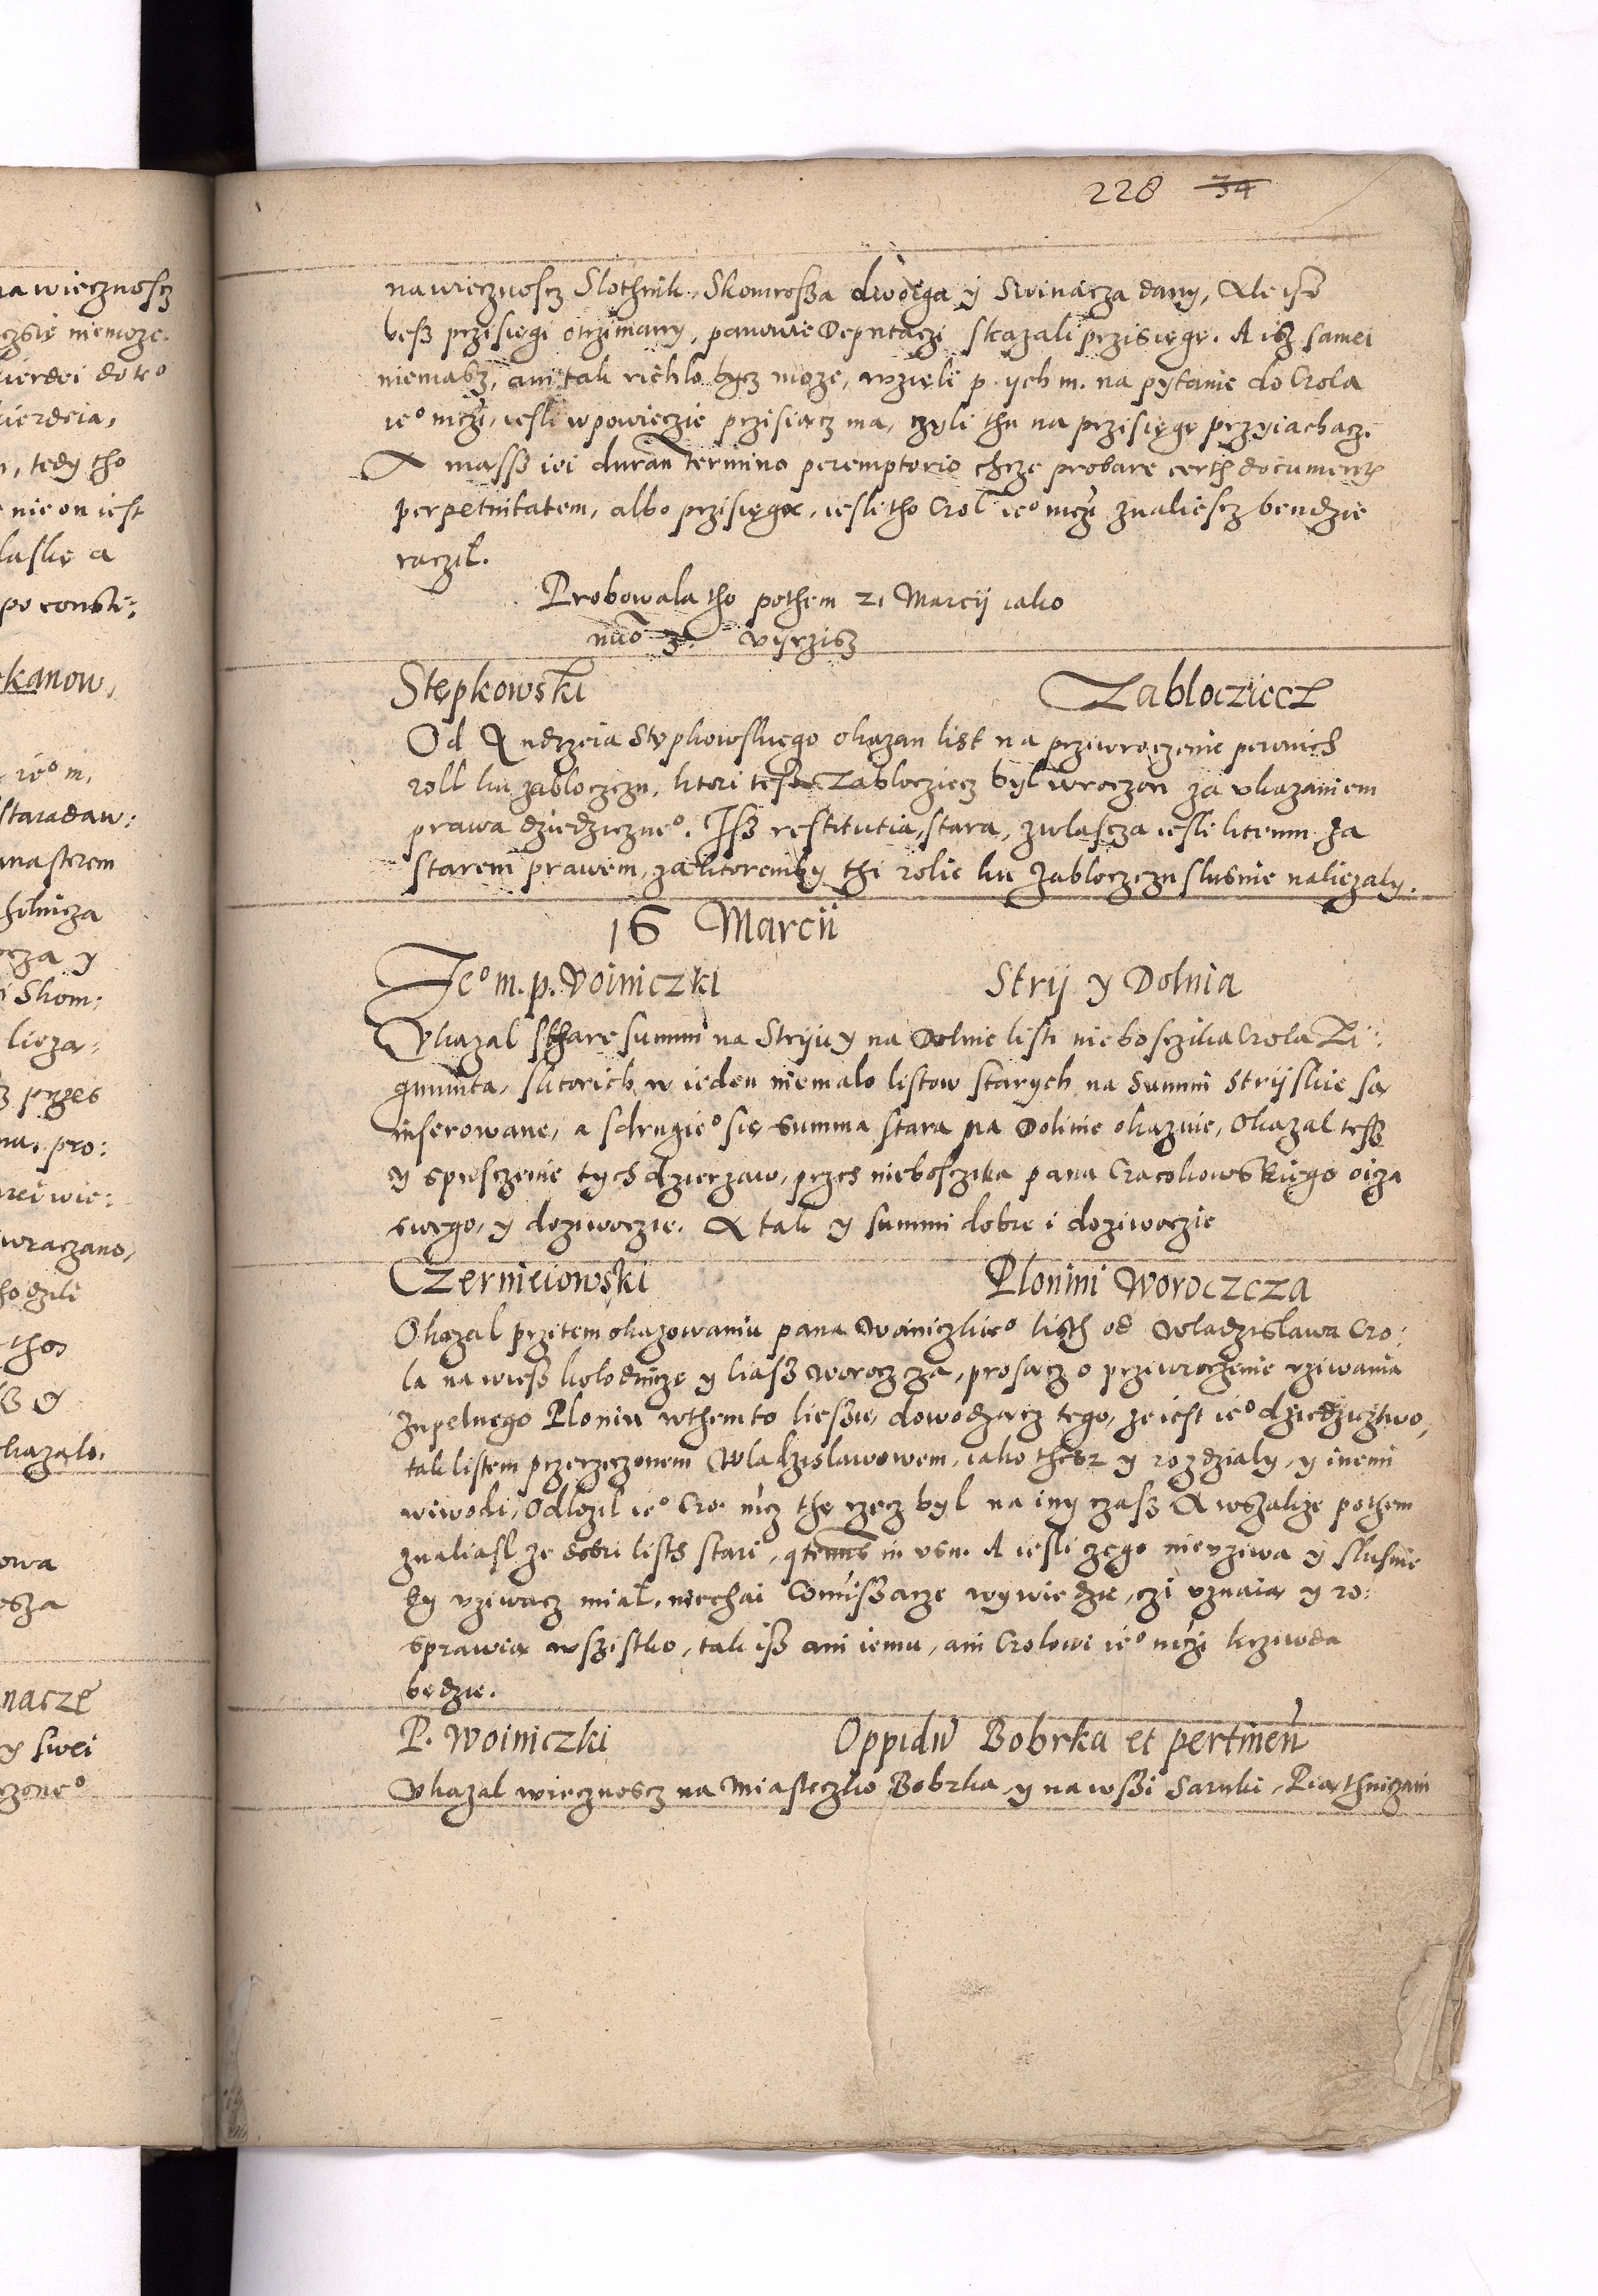 228 34
na wiecznoscz Slothnik, Skomrossa dwoiga y Swinacza dany, Ale isz
besz przisięgi otrzimany, panowie Deputaczi skazali przisięgę. A isz samei
niemasz, ani tak richlo bycz moze, wzięli p. ych m. na pytanie do Crola
ie° mczi, iesli w powieczie przisiącz ma, czyli thu na przisięgę przyiachacz.
A massz iei duran termino peremptorio chcze probare certis document
perpetuitatem, albo przisięgą, iesli tho Crol ie° mczi znaliescz bendzie
raczil.
Probowala tho pothem 21 Marcij iako
nuo 3 vyrzisz
Stępkowski Zablocziecz
Od Andrzeia Stępkowskiego okazan list na przewroczenie pewnich
roll ku Zabloczczu, ktori tesz Zablocziecz byl wroczon za ukazaniem
prawa dziedziczne°. Isz restitutia stara, zwlascza iesli kitemu za
starem prawem, za ktoremby thi rolie ku Zabloczczu slusnie naliezaly.
16 Marcii
Je° m. p. Voiniczki Strij y Dolnia
Ukazal sthare summi na Striju y na Dolnie listi nieboszczika Crola Zi:
gmunta, s ktorich w ieden niemalo listow starych na Summi Strijskie są
inserowane, a s drugie° się summa stara na Dolinie okazuie, Okazal tesz
y spusczenie tych dzierzaw, przes nieboszczika pana Cracokowskiego oicza
swego, y dozywoczie. A tak y summi dobre i doziwoczie
Czerniciowski Plonini Woroczcza
Okazal przitem okazowaniu pana Woiniczkie° listh od Wladzislawa Cro:
la na wiesz kolodnicze y liasz Woroczcza, prosącz o przewroczenie uziwania
zupelnego Plonin w themto liessu, dowodzącz tego, ze iest ie° dziedzicztwo,
tak listem przerzeczonem Wladzislawowem, iako thesz y rozdzialy, y inemi
wiwodi, Odlozil ie° Cro. mcz thę rzecz byl na iny czasz A wszakze pothem
znaliasl ze dobri listh stari, qtenus in usu. A iesli czego nieuziwa y slusnie
by uziwacz mial, niechai Comissarze wywiedzie, czi uznaią y ro:
sprawią wszistko, tak isz ani iemu, ani Crolowi ie° mczi krziwda
będzie.
P. Woiniczki Oppidu Bobrka et pertinen
Ukazal wiecznoscz na Miasteczko Bobrka y na wssi Sarnki, Piąthniczani